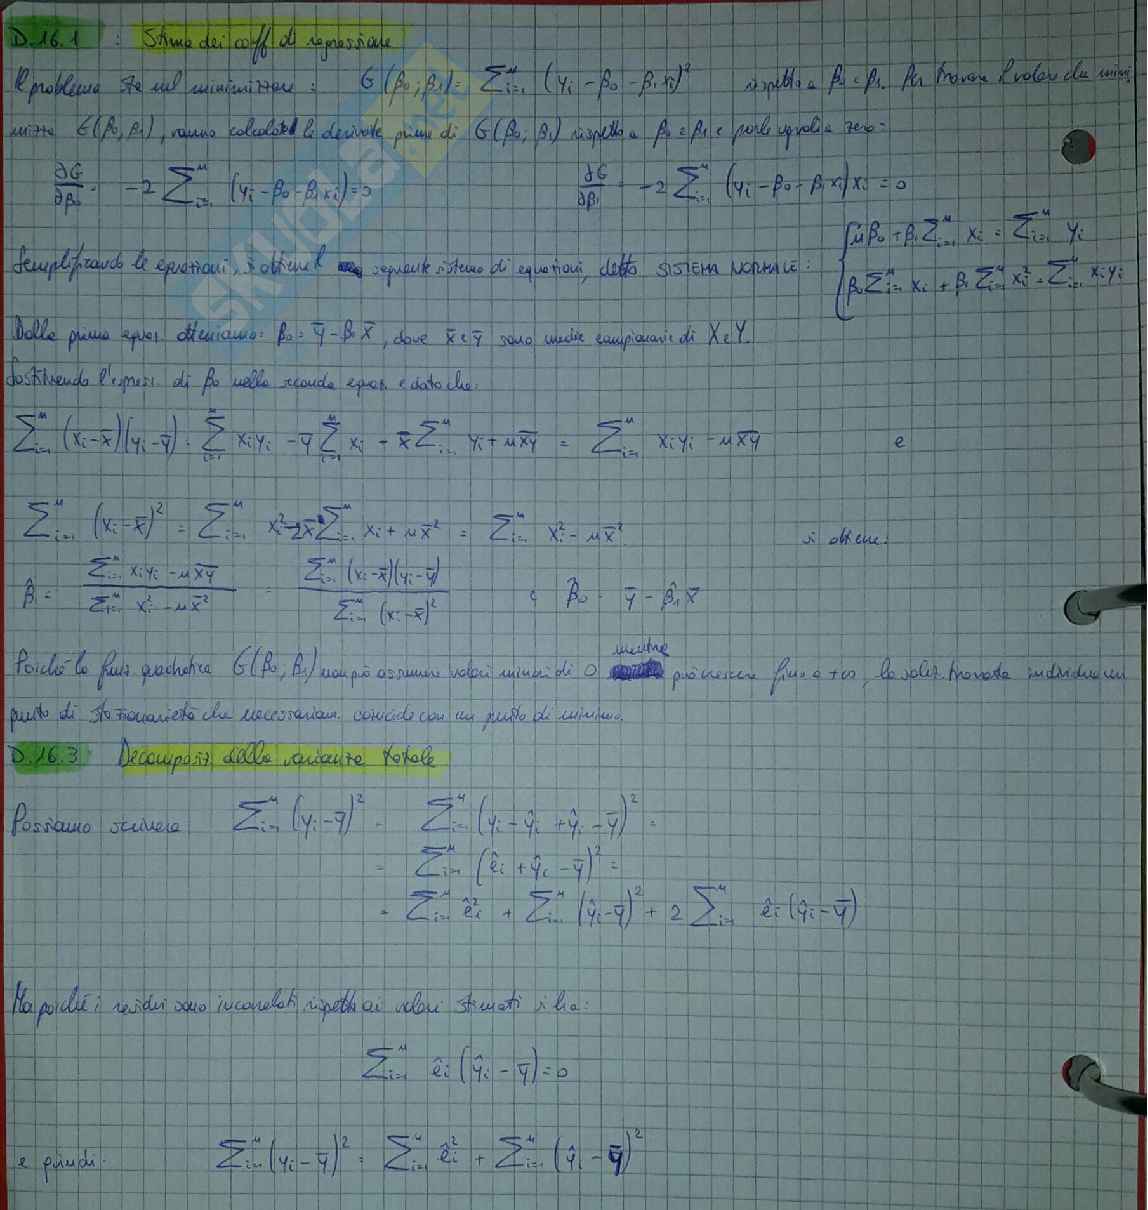 D.16.1 : Stima dei coeff di regressione
Il problema sta nel minimizzare : G(β₀; β₁) = Σᵢ₌₁ⁿ (yᵢ - β₀ - β₁xᵢ)² rispetto a β₀ e β₁. Per trovare il valore che mini
mizza G(β₀, β₁), vanno calcolate le derivate prime di G(β₀; β₁) rispetto a β₀ e β₁ e porle uguali a zero:
∂G/∂β₀ = -2 Σᵢ₌₁ⁿ (yᵢ - β₀ - β₁xᵢ) = 0 ∂G/∂β₁ = -2 Σᵢ₌₁ⁿ (yᵢ - β₀ - β₁xᵢ)xᵢ = 0
Semplificando le equazioni, si ottiene il seguente sistema di equazioni, detto SISTEMA NORMALE : { nβ₀ + β₁ Σᵢ₌₁ⁿ xᵢ = Σᵢ₌₁ⁿ yᵢ
β₀ Σᵢ₌₁ⁿ xᵢ + β₁ Σᵢ₌₁ⁿ xᵢ² = Σᵢ₌₁ⁿ xᵢyᵢ
Dalla prima equaz. otteniamo: β₀ = ȳ - β₁x̄, dove x̄ e ȳ sono medie campionarie di X e Y.
Sostituendo l'espress. di β₀ nella seconda equaz. e dato che:
Σᵢ₌₁ⁿ (xᵢ - x̄)(yᵢ - ȳ) = Σᵢ₌₁ⁿ xᵢyᵢ - ȳ Σᵢ₌₁ⁿ xᵢ - x̄ Σᵢ₌₁ⁿ yᵢ + nx̄ȳ = Σᵢ₌₁ⁿ xᵢyᵢ - nx̄ȳ e
Σᵢ₌₁ⁿ (xᵢ - x̄)² = Σᵢ₌₁ⁿ xᵢ² - 2x̄ Σᵢ₌₁ⁿ xᵢ + nx̄² = Σᵢ₌₁ⁿ xᵢ² - nx̄² si ottiene:
β̂₁ = (Σᵢ₌₁ⁿ xᵢyᵢ - nx̄ȳ) / (Σᵢ₌₁ⁿ xᵢ² - nx̄²) = (Σᵢ₌₁ⁿ (xᵢ - x̄)(yᵢ - ȳ)) / (Σᵢ₌₁ⁿ (xᵢ - x̄)²) e β̂₀ = ȳ - β̂₁x̄
Poiché la funz quadratica G(β₀; β₁) non può assumere valori minori di 0 mentre può crescere fino a +∞, la soluz. trovata individua un
punto di stazionarietà che necessariam. coincide con un punto di minimo.
D.16.3 : Decomposiz della varianza totale
Possiamo scrivere Σᵢ₌₁ⁿ (yᵢ - ȳ)² = Σᵢ₌₁ⁿ (yᵢ - ŷᵢ + ŷᵢ - ȳ)² =
= Σᵢ₌₁ⁿ (êᵢ + ŷᵢ - ȳ)² =
= Σᵢ₌₁ⁿ êᵢ² + Σᵢ₌₁ⁿ (ŷᵢ - ȳ)² + 2 Σᵢ₌₁ⁿ êᵢ (ŷᵢ - ȳ)
Ma poiché i residui sono incorrelati rispetto ai valori stimati si ha:
Σᵢ₌₁ⁿ êᵢ (ŷᵢ - ȳ) = 0
e quindi: Σᵢ₌₁ⁿ (yᵢ - ȳ)² = Σᵢ₌₁ⁿ êᵢ² + Σᵢ₌₁ⁿ (ŷᵢ - ȳ)²
SKUOLA.NET